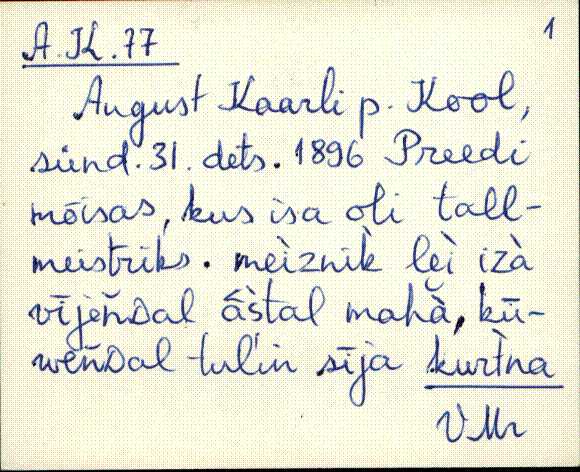 A.K. 77
1
August Kaarli p. Kool,
sünd. 31. dets. 1896 Preedi
mõisas, kus isa oli tall-
meistriks. mèiznik̀ lèì izà
vījen̆Dal ā̀štal mahà̆, kū-
wen̆Dal tul'in sīja kurt̀na
VMr